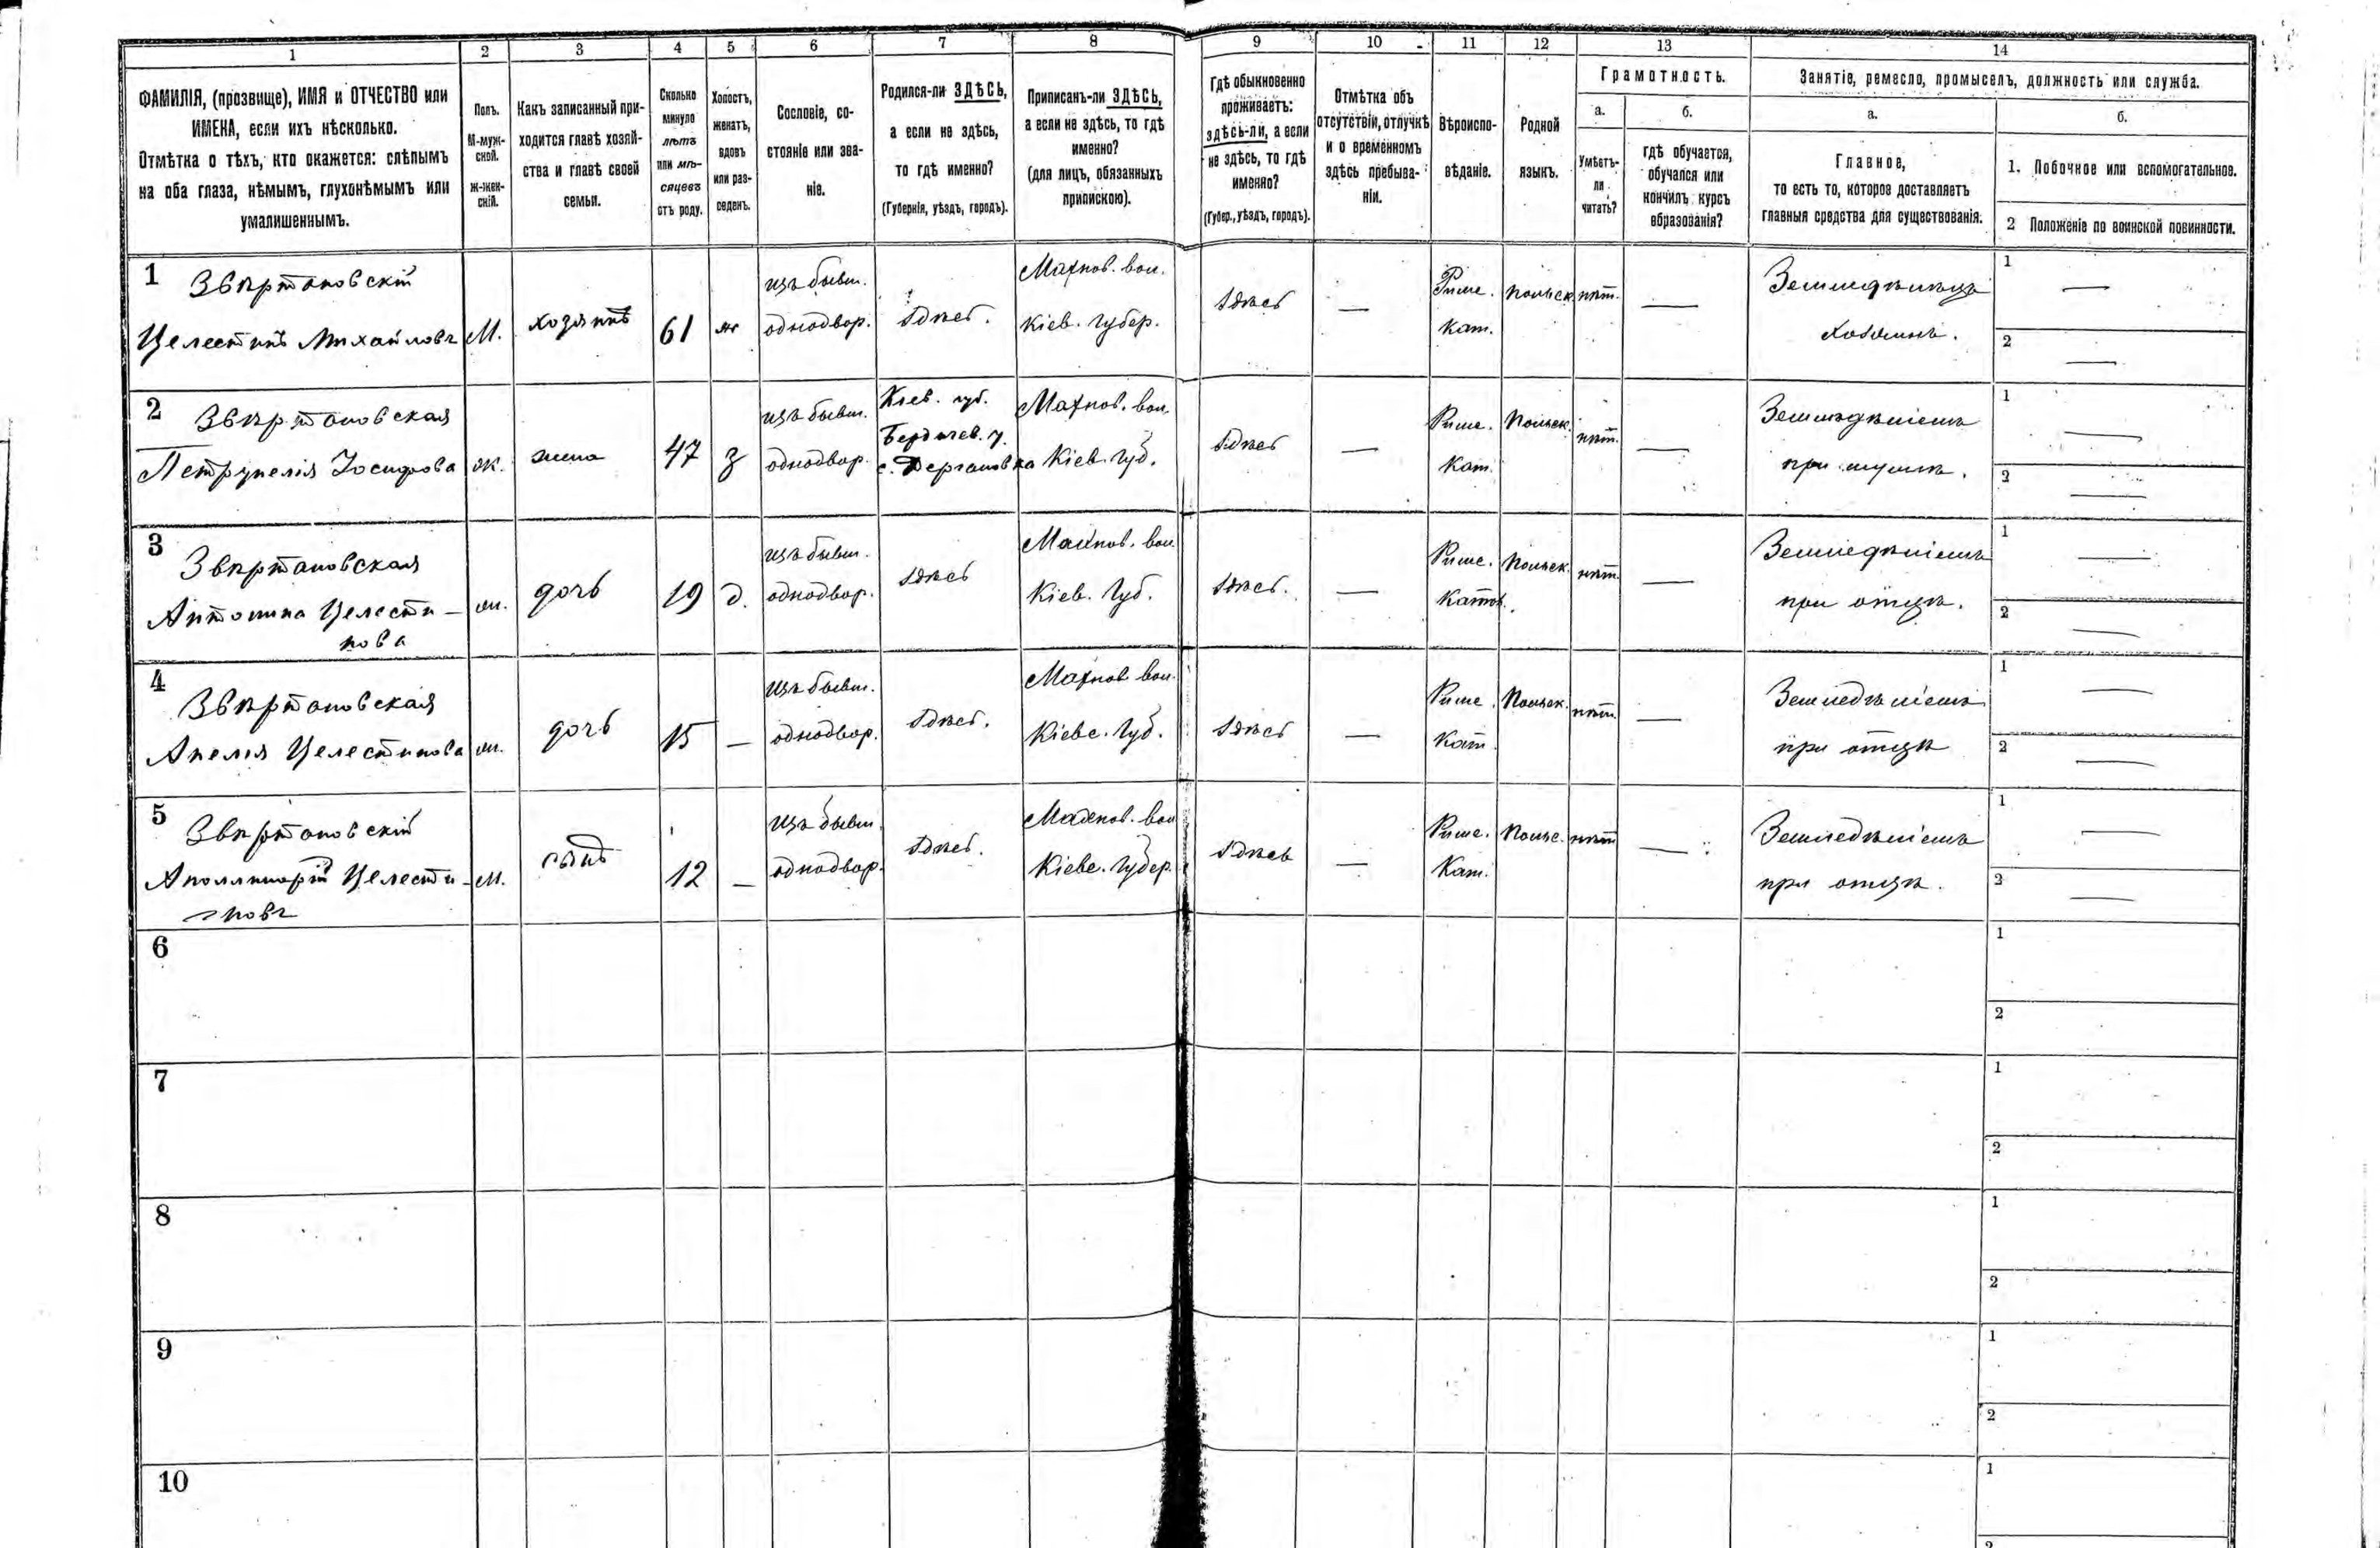 1 2 3 4 5 6 7 8 9 10 11 12 13 14
ФАМИЛІЯ, (прозвище), ИМЯ и ОТЧЕСТВО или
ИМЕНА, если ихъ нѣсколько.
Отмѣтка о тѣхъ, кто окажется: слѣпымъ
на оба глаза, нѣмымъ, глухонѣмымъ или
умалишеннымъ.
Полъ.
М-муж-
ской.
ж-жен-
скій.
Какъ записанный при-
ходится главѣ хозяй-
ства и главѣ своей
семьи.
Сколько
минуло
лѣтъ
или мѣ-
сяцевъ
отъ роду.
Холостъ,
женатъ,
вдовъ
или раз-
веденъ.
Сословіе, со-
стояніе или зва-
ніе.
Родился-ли ЗДѢСЬ,
а если не здѣсь,
то гдѣ именно?
(Губернія, уѣздъ, городъ).
Приписанъ-ли ЗДѢСЬ,
а если не здѣсь, то гдѣ
именно?
(для лицъ, обязанныхъ
припискою).
Гдѣ обыкновенно
проживаетъ:
здѣсь-ли, а если
не здѣсь, то гдѣ
именно?
(Губер., уѣздъ, городъ).
Отмѣтка объ
отсутствіи, отлучкѣ
и о временномъ
здѣсь пребыва-
ніи.
Вѣроиспо-
вѣданіе.
Родной
языкъ.
Грамотность.
а.
Умѣетъ-
ли
читать?
б.
гдѣ обучается,
обучался или
кончилъ курсъ
образованія?
Занятіе, ремесло, промыселъ, должность или служба.
а.
Главное,
то есть то, которое доставляетъ
главныя средства для существованія.
б.
1. Побочное или вспомогательное.
2 Положеніе по воинской повинности.
1 Звѣртановскій
Целестинъ Михайловъ
М.
хозяинъ
61
ж
изъ бывш.
однодвор.
здѣсь.
Махнов. вол.
Кіев. губер.
здѣсь
—
Римс.
Кат.
польск.
нѣт.
—
Земледѣлецъ
хозяинъ.
1 —
2 —
2 Звѣртановская
Петрунелія Іосифова
ж.
жена
47
з
изъ бывш.
однодвор.
Кіев. губ.
Бердичев. у.
Махнов. вол.
Кіев. губ.
здѣсь
—
Римс.
Кат.
Польск.
нѣт.
—
Земледѣліемъ
при мужѣ.
1 —
2 —
3 Звѣртановская
Антонина Целести-
нова
ж.
дочь
19
д.
изъ бывш.
однодвор.
здѣсь
Махнов. вол.
Кіев. Губ.
здѣсь.
—
Римс.
Катол.
Польск.
нѣт.
—
Земледѣліемъ
при отцѣ.
1 —
2 —
4 Звѣртановская
Анелія Целестинова
ж.
дочь
15
—
изъ бывш.
однодвор.
здѣсь.
Махнов. вол.
Кіевс. Губ.
здѣсь
—
Римс.
Кат.
Польск.
нѣт.
—
Земледѣліемъ
при отцѣ
1 —
2 —
5 Звѣртановскій
Аполлинарій Целести-
новъ
М.
сынъ
12
—
изъ бывш.
однодвор.
здѣсь.
Махнов. вол
Кіевс. губер.
здѣсь
—
Римс.
Кат.
Польс.
нѣт
—
Земледѣліемъ
при отцѣ.
1 —
2 —
6
1
2
7
1
2
8
1
2
9
1
2
10
1
2